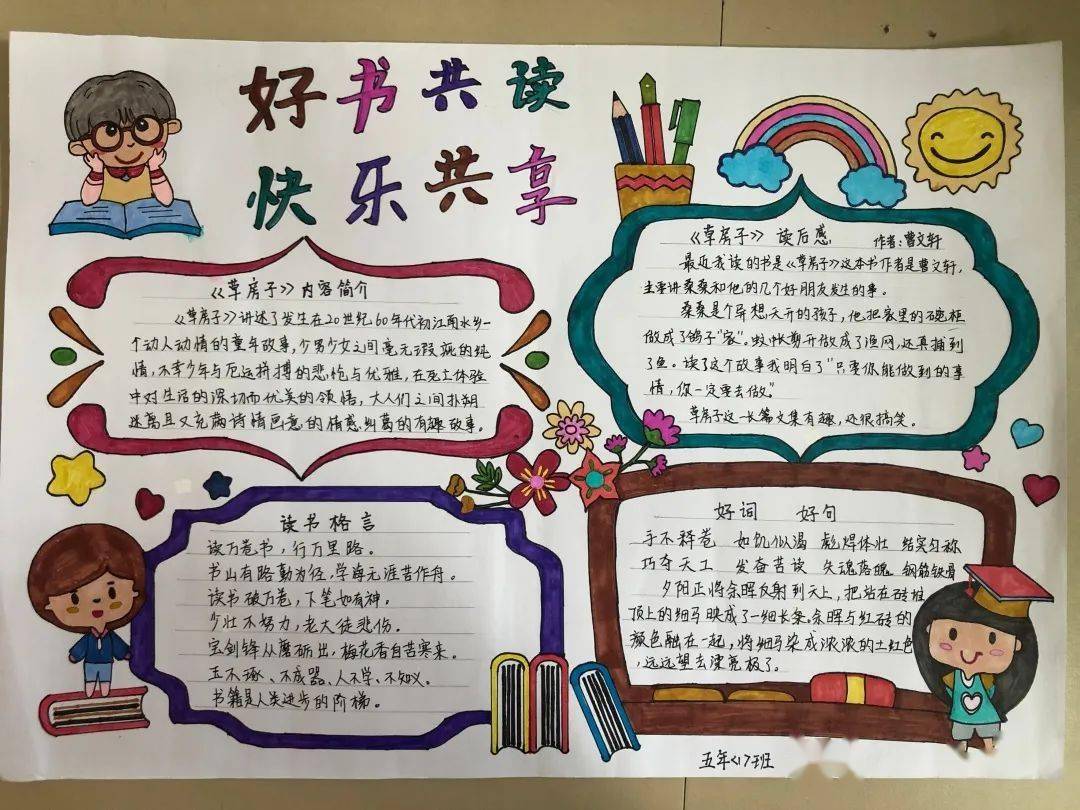 好书共读
快乐共享
《草房子》内容简介
《草房子》讲述了发生在20世纪60年代初江南水乡一
个动人动情的童年故事,少男少女之间毫无瑕疵的纯
情,不幸少年与厄运拼搏的悲怆与优雅,在死亡体验
中对生活的深切而优美的领悟,大人们之间扑朔
迷离且又充满诗情画意的情感纠葛的有趣故事。
《草房子》读后感 作者:曹文轩
最近我读的书是《草房子》这本书作者是曹文轩,
主要讲桑桑和他的几个好朋友发生的事。
桑桑是个异想天开的孩子,他把家里的碗柜
做成了鸽子"家"。蚊帐剪开做成了渔网,还真捕到
了鱼。读了这个故事我明白了"只要你能做到的事
情,你一定要去做。"
草房子这一长篇文集有趣,还很搞笑。
读书格言
读万卷书,行万里路。
书山有路勤为径,学海无涯苦作舟。
读书破万卷,下笔如有神。
少壮不努力,老大徒悲伤。
宝剑锋从磨砺出,梅花香自苦寒来。
玉不琢、不成器、人不学、不知义。
书籍是人类进步的阶梯。
好词 好句
手不释卷 如饥似渴 彪焊体壮 结实匀称
巧夺天工 发奋苦读 失魂落魄 钢筋铁骨
夕阳正将余晖反射到天上,把站在砖堆
顶上的细马映成了一细长条。余晖与红砖的
颜色融在一起,将细马染成浓浓的土红色
,远远望去漂亮极了。
五年<1>班